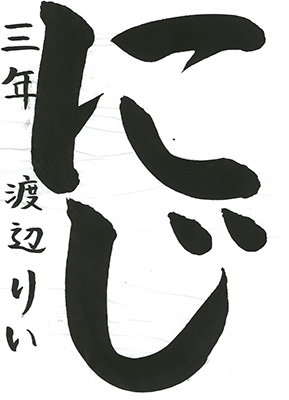 にじ
三年 渡辺りい